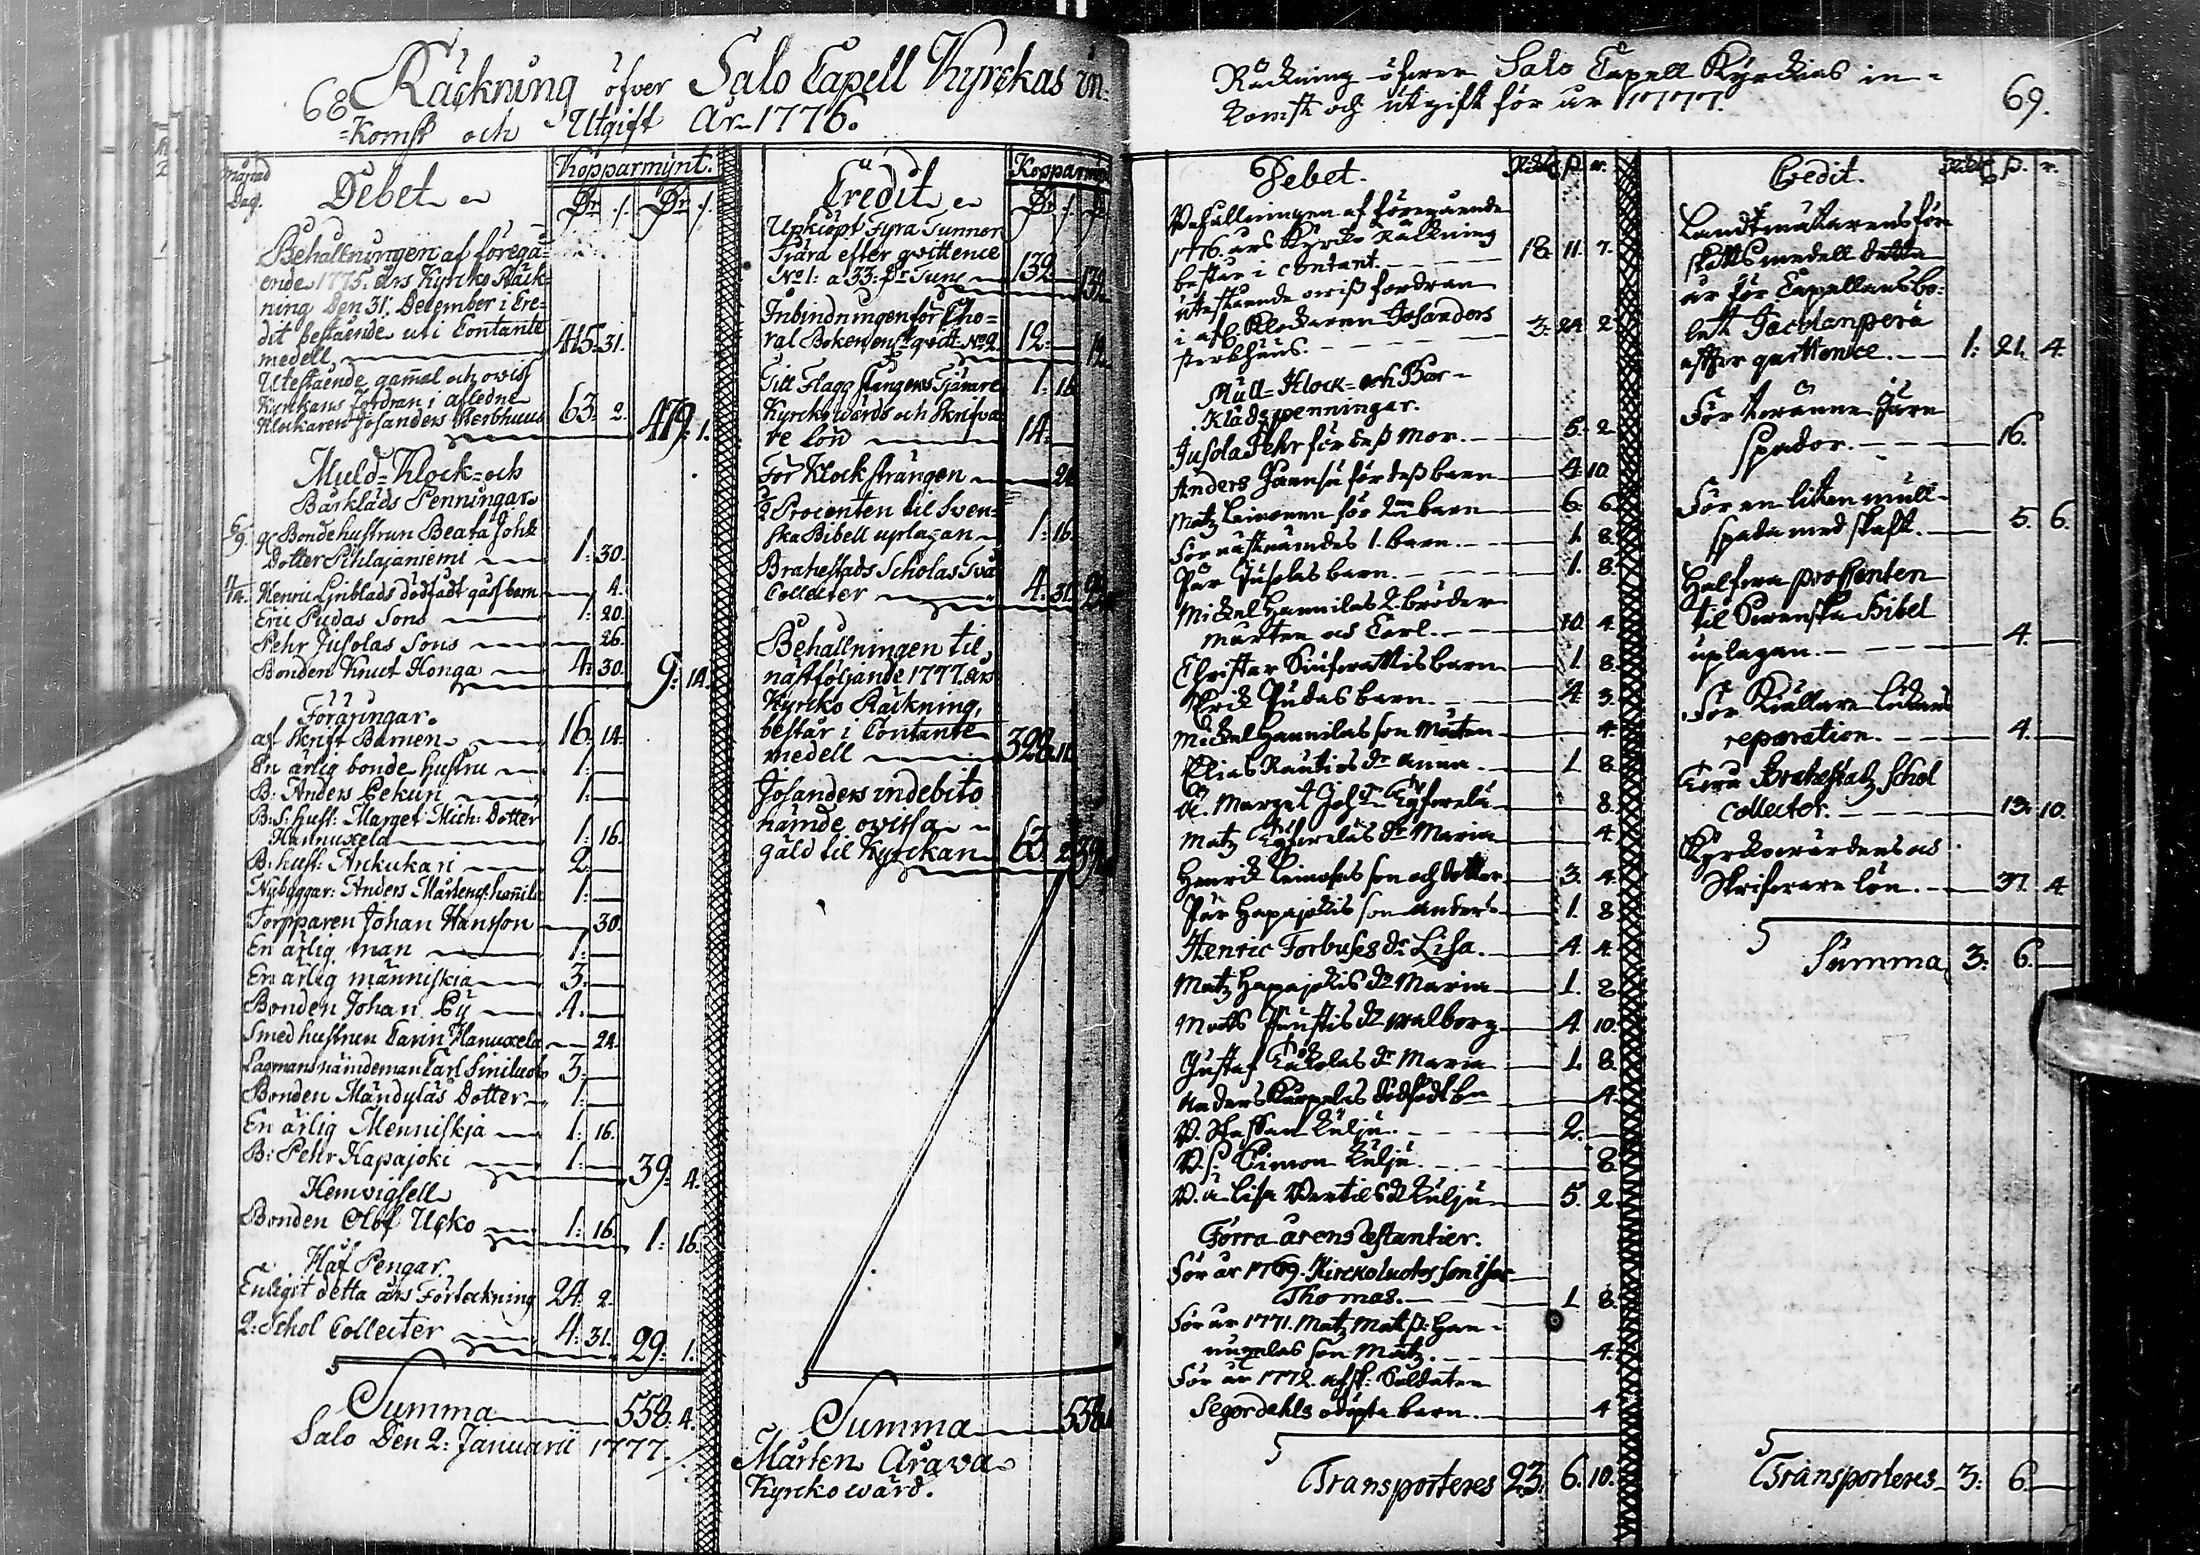 68 Räckning öfver Salo Capell Kyrckas in-
=komst och Utgift År 1776.
Månad
Dag.
Debet
Kopparmynt.
Dr /. Dr /.
Behållningen af föregå-
ende 1775. års Kyrcko Räck-
ning Den 31. December i Cre-
dit bestående uti Contante
medell 415. 31.
Utestående gamal och oviss
Kyrckans fordran i afledne
Klockaren Josanders Sterbhuus 63: 2. 479: 1.
Muld-Klock-och
Bårkläds Penningar
6/9. Bondehustrun Beata Joh:
Dotter Pihlajaniemi 1: 30.
Henric Linblads dödfådt gåsbarn 4.
Eric Pudas Sons 1: 20.
Pehr Jusolas Sons 26.
Bonden Knut Honga 4: 30. 9: 14.
Föräringar.
af Skrift Barnen 16: 14.
En ärlig bonde hustru 1:
B: Anders Pekuri 1:
B: S: hust: Marget Mich: Dotter
Hannuxela 1: 16.
B: hust: Ankukari 2:
Nybyggar: Anders Mårtens: hanila 1:
Torpparen Johan Hansson 30.
En ärlig man 1:
En ärlig människia 3:
Bonden Johan Py 4:
Smed hustrun Carin Hanuxela 24.
Lagmans nämdeman Carl Siniluoto 3:
Bonden Mändyläs Dotter 1:
En ärlig Menniskja 1: 16.
B: Pehr Hapajoki 1: 39: 4.
Hemvigsell
Bonden Olof Ucko 1: 16. 1: 16.
Håf Pengar.
Enligit detta års Förteckning 24: 2.
2: Schol Collecter 4: 31. 29: 1.
Summa 558. 4.
Salo Den 2: Januarii 1777.
Credit
Kopparmyn
Dr /. Dr
Upkiöpt Fyra Tunnor
Tjära efter qvittence
No 1: a 33: Dr Tune 132 132
Inbindningen för Cho=
ral Boken enl qvitt No 2 12: 12
Till Flagg stangens Tjärare 1: 16
Kyrckowärds och Skrifva
re lön 14:
För Klocksträngen 24
½ Procenten til Sven-
ska Bibell uplagan 1: 16.
Brahestads Scholas Två
Collecter 4: 31.
Behållningen til
nästföljande 1777. års
Kyrcko Räckning,
består i Contante
medell
Josanders indebito
nämde ovissa
gäld til Kyrckan 63. 2
Summa 558
Mårten Arava
Kyrckowärd.
Räckning öfwer Salo Capell Kyrckias in-
komst och Utgift för år 1777.
69.
Debet.
ß. r.
Behållningen af föregående
1776. års Kyrcko Räckning
består i Contant. 18. 11. 7.
Utestående owiß fordran
i afl. Klockaren Josanders
sterbhuus. 3: 24. 2
Mull-Klock-och Bår-
Klädspenningar.
Jusola Pehr för deß Mor. 5. 2
Anders Jaansu för deß barn 4. 10
Matz Leinonen för 2ne barn 6. 6
För nästnämdes 1. barn. 1. 8.
Pär Jusolas barn. 1. 8.
Mickel Hannilas 2. bröder
Mårten och Carl. 10. 4.
Christer Siuferattis barn 1. 8.
Erik Pudas barn. 4. 3.
Mickel Hannilas son Mårten 4.
Elias Rautios Dr Anna. 1. 8.
E. Marget Johsdr Typpelä 8.
Matz Typpeläs Dr Maria 4.
Henrik Leinoses son och dotter 3. 4.
Pär Hapajokis son Anders 1. 8
Henric Forbuses Dr Lisa. 4. 4.
Matz Hapajokis Dr Maria 1. 8
Matts Puustis Dr Walborg 4. 10.
Gustaf Tuckolas Dr Maria 1. 8
Anders Karpelas dödfödt bn 4.
B. Staffan Kulju. 2.
B. S. Simon Kulju. 8.
B. Ä. Lisa Bertils Dr Kulju 5. 2.
Förra årens Restantier.
För år 1769. Kirckoluotos son Isac
Thomas. 1. 8.
För år 1771. Matz Matß: Han-
nuxelas son Matz. 4.
För år 1772. afsk: Soldaten
Segerdahls odöpta barn. 4
Transporteres 23: 6. 10.
Credit.
ß. r.
Landtmätarens för-
skottsmedell detta
år för Capellansbo-
lett Jacolanperä
efter qvittence. 1: 21. 4.
För tvänne Järn
spador. 16.
För en liten mull-
spada med skaft. 5. 6.
Halfva procenten
til Swenska Bibel
uplagan. 4.
För Källare Luckans
reparation. 4.
Twå Brahestadz Schol
Collecter. 13. 10.
Kyrckowärdens och
Skrifware lön. 37. 4.
Summa 3: 6.
Transporteres 3: 6.